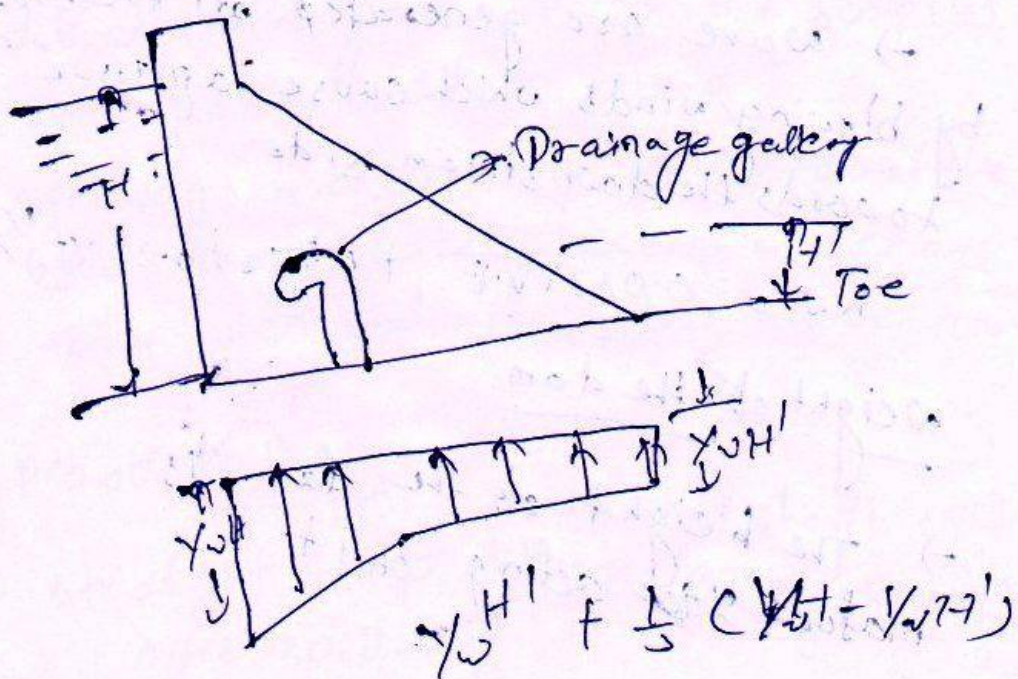 H
Drainage gallery
H'
Toe
γwH'
γwH
γwH' + 1/3 (γwH - γwH')